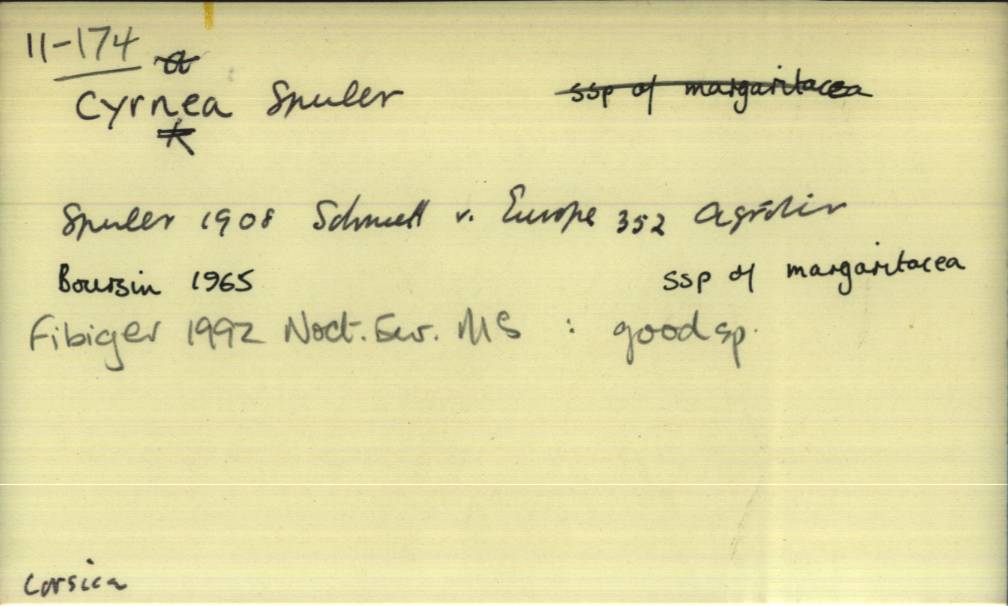 11-174
Cyrnea Spuler ssp of margaritacea
Spuler 1908 Schmett v. Europe 352 Agrotis
Boursin 1965 ssp of margaritacea
Fibiger 1992 Noct. Eur. MS : good sp.
Corsica